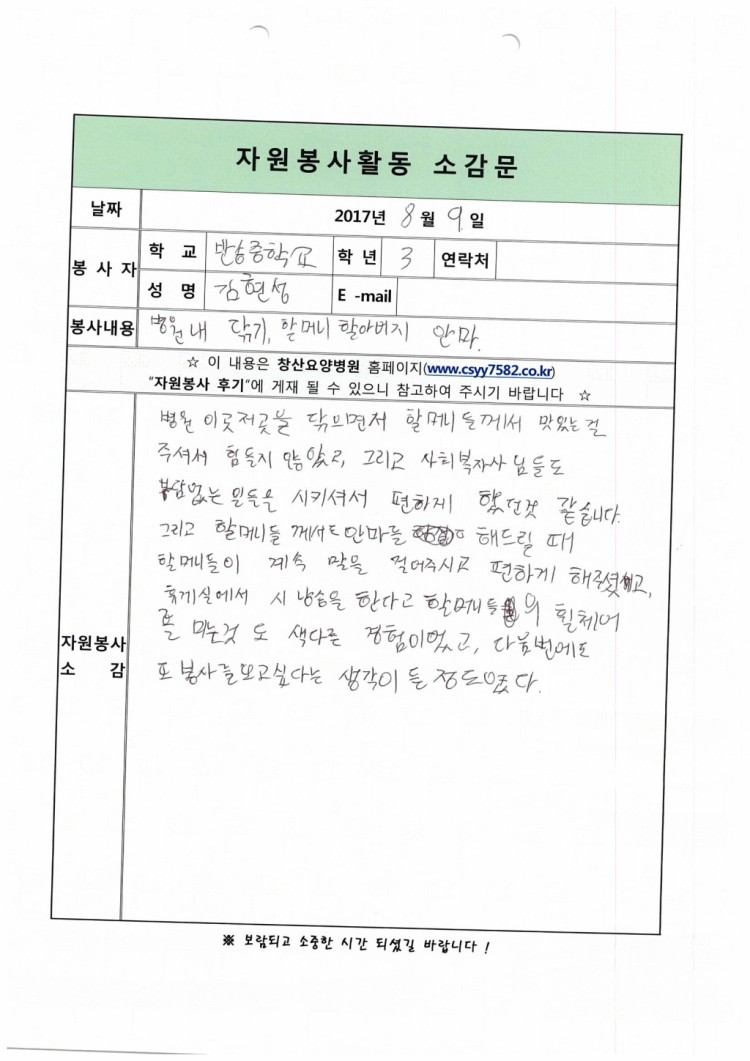 자원봉사활동 소감문
날짜 2017년 8월 9일
봉사자 학교 반송중학교 학년 3 연락처
성명 김현성 E-mail
봉사내용 병원내 닦기, 할머니 할아버지 안마.
☆ 이 내용은 창산요양병원 홈페이지(www.csyy7582.co.kr)
"자원봉사 후기"에 게재 될 수 있으니 참고하여 주시기 바랍니다 ☆
자원봉사 소감
병원 이곳저곳을 닦으면서 할머니들께서 맛있는걸
주셔서 힘들지 않았고, 그리고 사회복지사님들도
부담없는 일들을 시키셔서 편하게 했던것 같습니다.
그리고 할머니들 께서도 안마를 해드릴 때
할머니들이 계속 말을 걸어주시고 편하게 해주셨고,
휴게실에서 시 낭송을 한다고 할머니들의 휠체어
를 미는것 도 색다른 경험이었고, 다음번에도
또 봉사를 오고싶다는 생각이 들 정도였다.
※ 보람되고 소중한 시간 되셨길 바랍니다 !